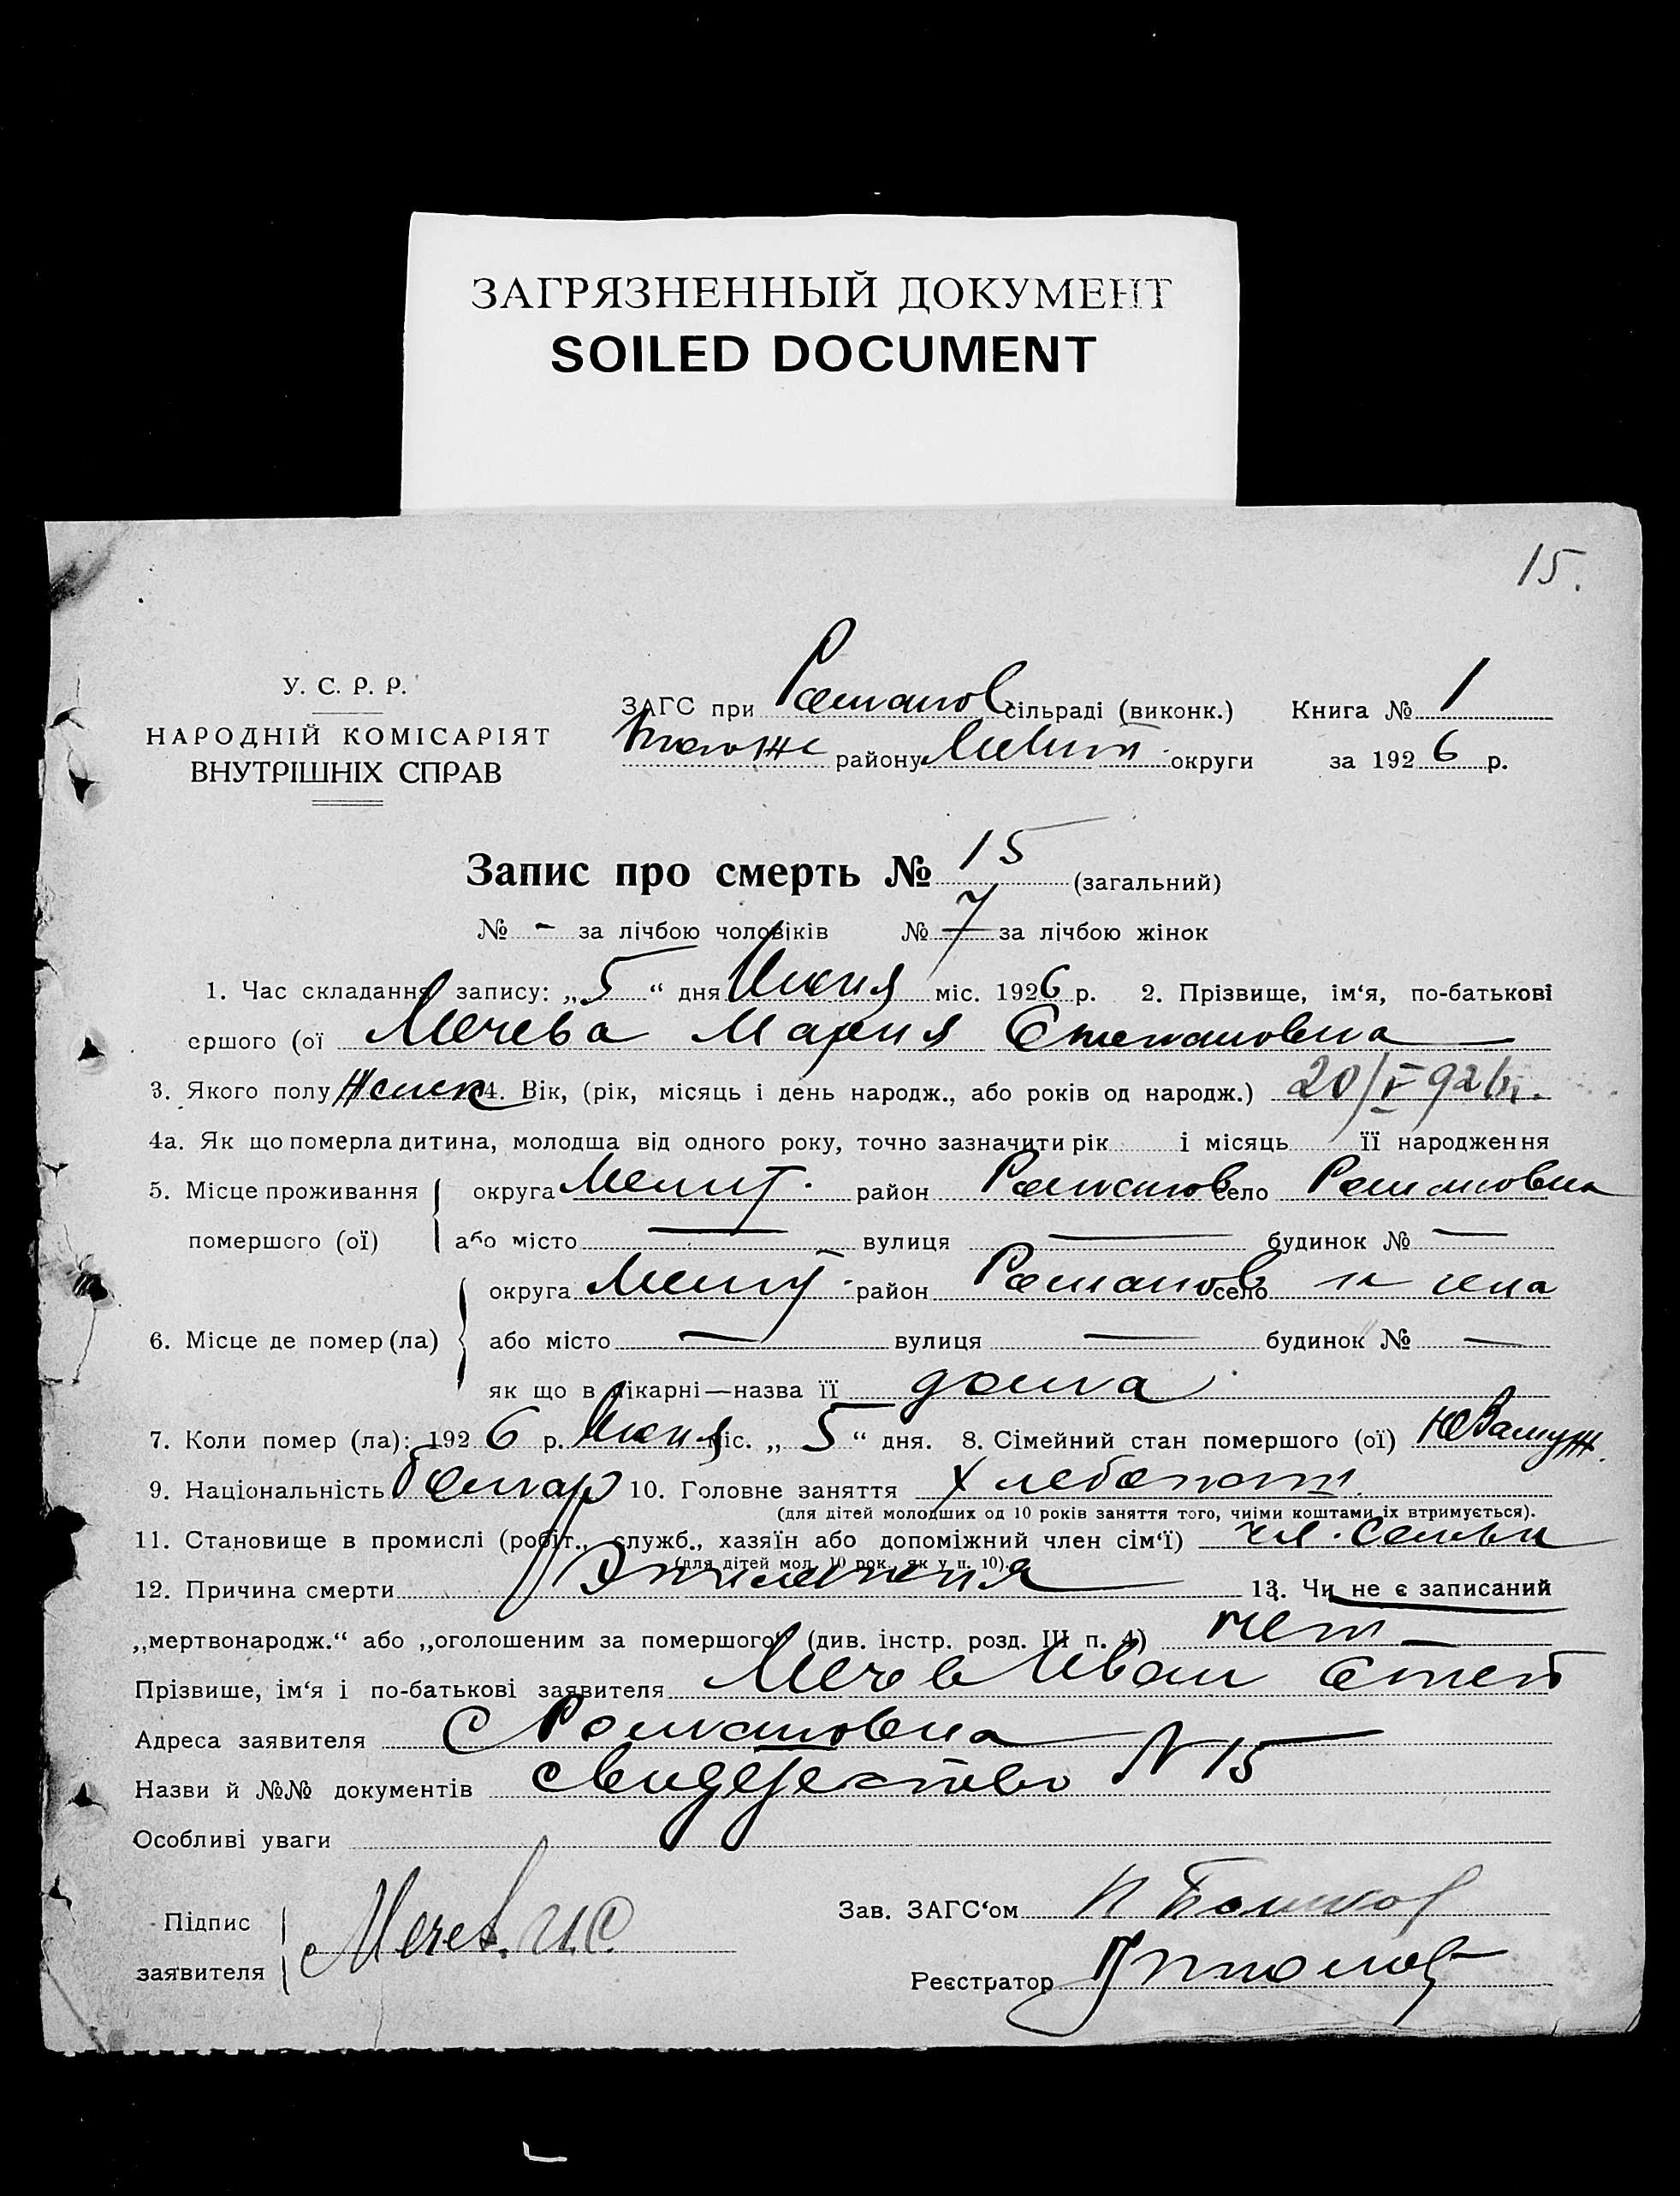 ЗАГРЯЗНЕННЫЙ ДОКУМЕНТ
SOILED DOCUMENT
15.
У. С. Р. Р.
НАРОДНІЙ КОМІСАРІЯТ
ВНУТРІШНІХ СПРАВ
ЗАГС при Романов сільраді (виконк.) Книга № 1
району округи за 1926 р.
Запис про смерть № 15 (загальний)
№ - за лічбою чоловіків № 7 за лічбою жінок
1. Час складання запису: „5“ дня Июня міс. 1926 р. 2. Прізвище, ім‘я, по-батькові
ершого (ої Мечева Мария Степановна
3. Якого полу Женск 4. Вік, (рік, місяць і день народж., або років од народж.) 20/V 926
4а. Як що померла дитина, молодша від одного року, точно зазначити рік і місяць її народження
5. Місце проживання округа Мелит. район Романов село Романовка
помершого (ої) або місто — вулиця — будинок № —
округа Мелит. район Романов село
6. Місце де помер (ла) або місто — вулиця — будинок № —
як що в лікарні—назва її дома
7. Коли помер (ла): 1926 р. Июня міс. „5“ дня. 8. Сімейний стан помершого (ої)
9. Національність Болгар 10. Головне заняття Хлебопаш.
(для дітей молодших од 10 років заняття того, чиїми коштами їх втримується).
11. Становище в промислі (робіт., служб., хазяїн або допоміжний член сім‘ї) чл. семьи
(для дітей мол. 10 рок., як у п. 10).
12. Причина смерти 13. Чи не є записаний
„мертвонародж.“ або „оголошеним за помершого“ (див. інстр. розд. III п. 4) нет
Прізвише, ім‘я і по-батькові заявителя Мечев Иван Степ
Адреса заявителя С Романовка
Назви й №№ документів N 15
Особливі уваги
Підпис заявителя Мечев. И.С.
Зав. ЗАГС‘ом
Реєстратор